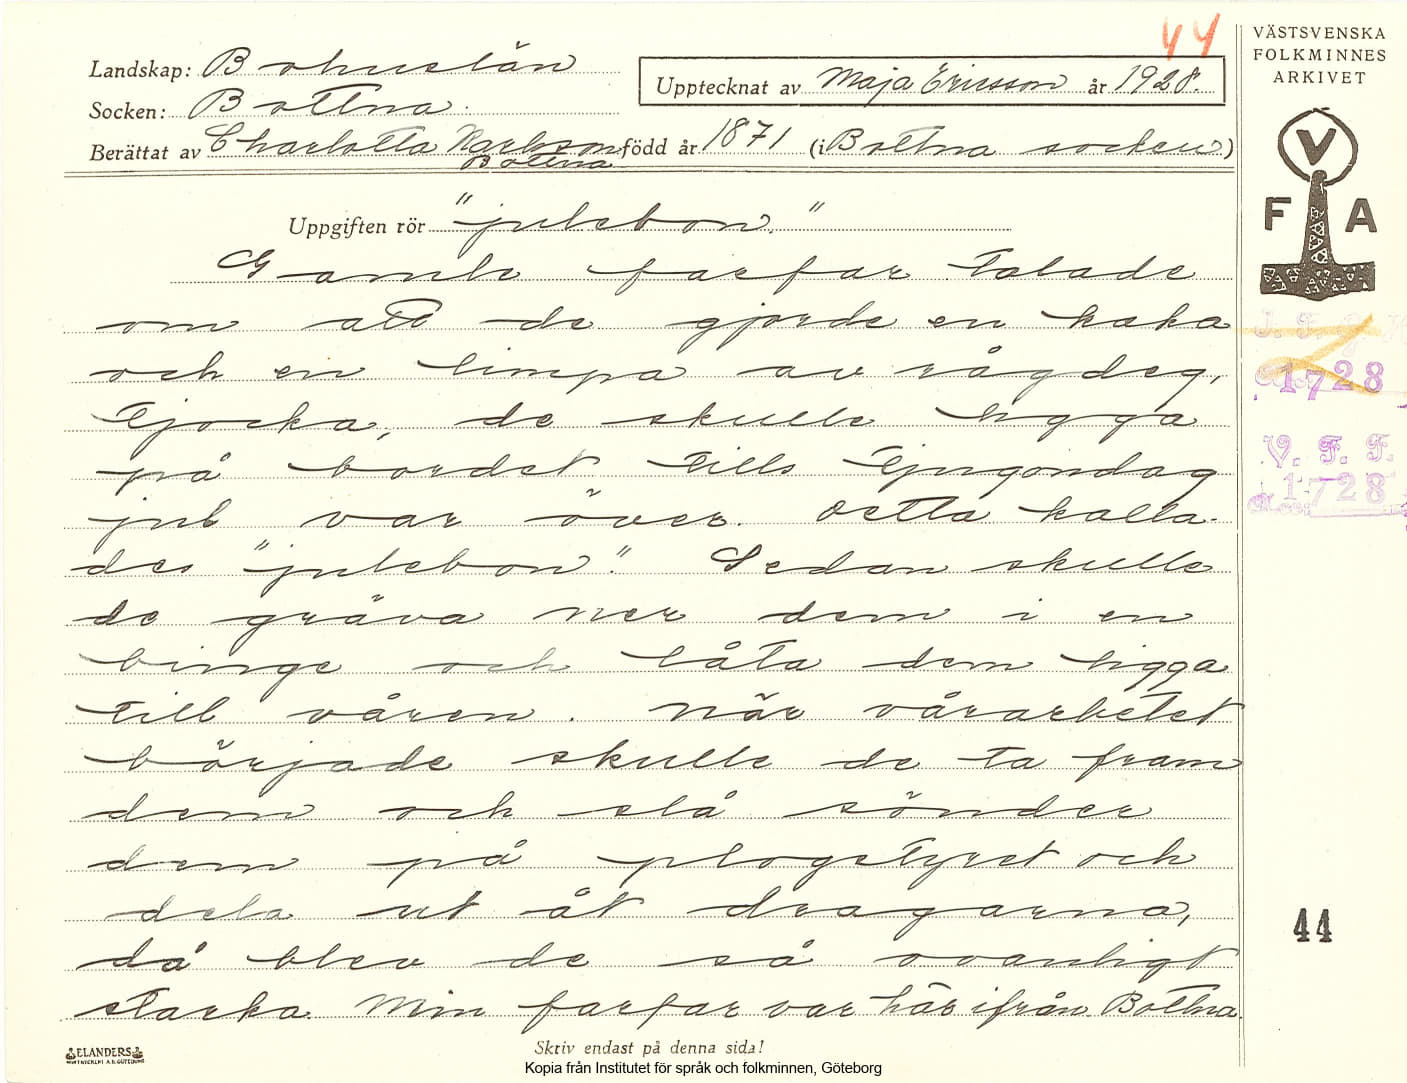 44
VÄSTSVENSKA
FOLKMINNES
ARKIVET
Landskap: Bohuslän
Upptecknat av Maja Ericsson år 1928.
Socken: Bottna.
Berättat av Charlotta född år 1871 (i Bottna socken.)
Bottna
V
F A
Uppgiften rör "julebon."
Gamle farfar talade
om att de gjorde en kaka
och en limpa av rågdeg,
tjocka, de skulle ligga
på bordet tills tjugondag
jul var över. Detta kalla-
des "julebon". Sedan skulle
de gräva ner dem i en
binge och låta dem ligga
till våren. När vårarbetet
började skulle de ta fram
dem och slå sönder
dem på plogstyret och
dela ut åt dragarna,
då blev de så ovanligt
starka. Min farfar var här ifrån Bottna.
1728
V. F. F.
1728
44
ELANDERS
Skriv endast på denna sida!
Kopia från Institutet för språk och folkminnen, Göteborg